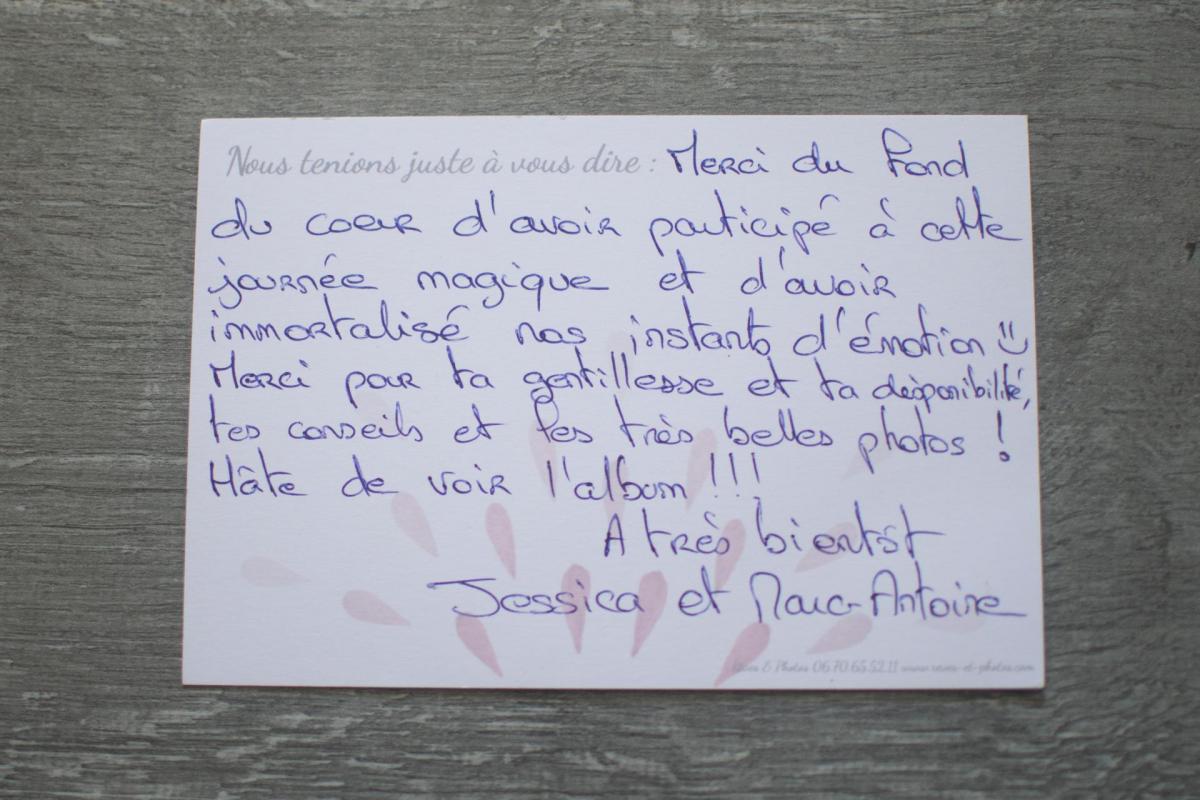 Nous tenions juste à vous dire : Merci du fond
du coeur d'avoir participé à cette
journée magique et d'avoir
immortalisé nos instants d'émotion :)
Merci pour ta gentillesse et ta disponibilité,
tes conseils et les très belles photos !
Hâte de voir l'album !!!
A très bientôt
Jessica et Marc-Antoine
Rêves & Photos 06.70.65.52.11 www.reves-et-photos.com